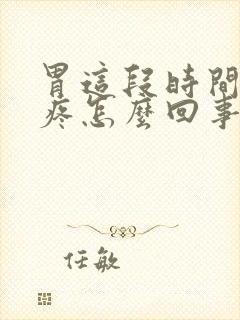 胃這段時間
疼怎麼回事
任敏